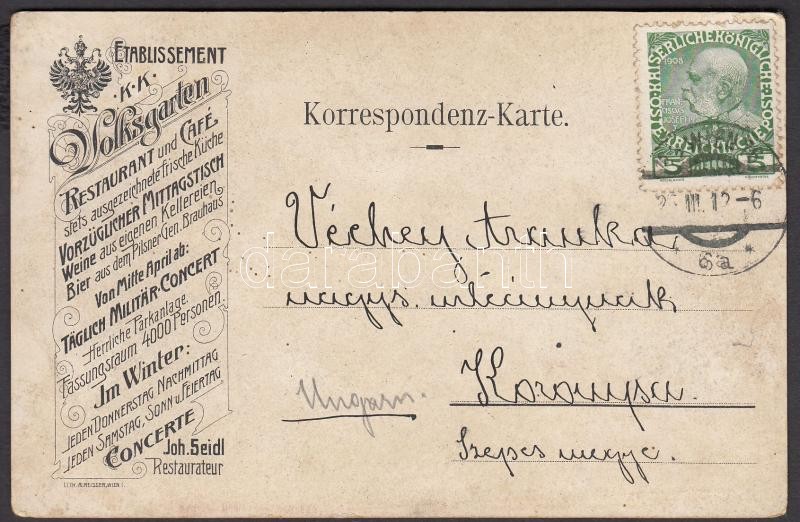 ETABLISSEMENT
K.K.
Volksgarten
RESTAURANT und CAFÉ
stets ausgezeichnete frische Küche
VORZÜGLICHER MITTAGSTISCH
Weine aus eigenen Kellereien
Bier aus dem Pilsner Gen. Brauhaus
Von Mitte April ab:
TÄGLICH MILITÄR-CONCERT
Herrliche Parkanlage.
Fassungsraum 4000 Personen.
Im Winter:
JEDEN DONNERSTAG NACHMITTAG
JEDEN SAMSTAG, SONN u. FEIERTAG
CONCERTE
Joh. Seidl
Restaurateur
Korrespondenz-Karte.
KAISERLICHEKÖNIGLICHE
1908
FRANCISCUS
JOSEPH I
5 5
III. 12-6
6a
Véchey Aranka
nagys.
Korompa.
Ungarn.
Szepes megye.
databanth